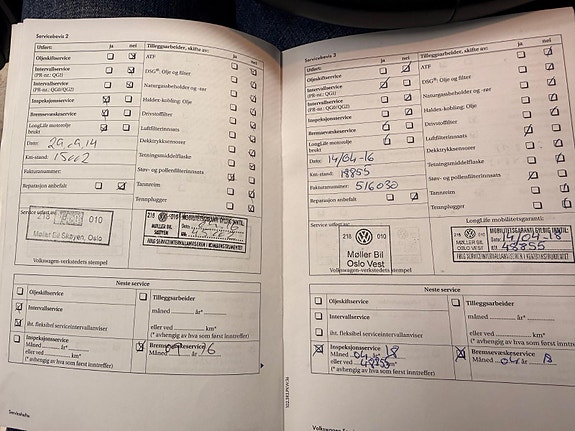 Servicebevis 2
Utført: ja nei Tilleggsarbeider, skifte av: ja nei
Oljeskiftservice
ATF
Intervallservice
(PR-nr.: QG1)
DSG®: Olje og filter
Intervallservice
(PR-nr.: QG0/QG2)
Naturgassbeholder og -rør
Inspeksjonsservice
Haldex-kobling: Olje
Bremsevæskeservice
Drivstoffilter
LongLife motorolje
brukt
Luftfilterinnsats
Dato: 29.09.14
Dekktrykksensorer
Km-stand: 15002
Tenningsmiddelflaske
Fakturanummer:
Støv- og pollenfilterinnsats
Reparasjon anbefalt
Tannreim
Tennplugger
Service utført av:
218 010
Møller Bil Skøyen, Oslo
218 010
MØLLER BIL
SKØYEN
Volkswagen-verkstedets stempel
Neste service
Oljeskiftservice
Tilleggsarbeider
Intervallservice
måned ........ år*
iht. fleksibel serviceintervallanviser
eller ved ........ km*
(* avhengig av hva som først inntreffer)
Inspeksjonsservice
Måned ........ år*
eller ved ........ km*
(* avhengig av hva som først inntreffer)
Bremsevæskeservice
Måned 09 år 16
Servicehefte
Servicebevis 3
Utført: ja nei Tilleggsarbeider, skifte av: ja nei
Oljeskiftservice
ATF
Intervallservice
(PR-nr.: QG1)
DSG®: Olje og filter
Intervallservice
(PR-nr.: QG0/QG2)
Naturgassbeholder og -rør
Inspeksjonsservice
Haldex-kobling: Olje
Bremsevæskeservice
Drivstoffilter
LongLife motorolje
brukt
Luftfilterinnsats
Dato: 14/04-16
Dekktrykksensorer
Km-stand: 18855
Tenningsmiddelflaske
Fakturanummer: 516030
Støv- og pollenfilterinnsats
Reparasjon anbefalt
Tannreim
Tennplugger
Service utført av:
LongLife mobilitetsgaranti:
218 010
Møller Bil
Oslo Vest
218 010
MØLLER BIL
OSLO VEST
MOBILITETSGARANTI GYLDIG INNTIL:
DATO 14/04-18
KM 48855
Volkswagen-verkstedets stempel
Neste service
Oljeskiftservice
Tilleggsarbeider
Intervallservice
måned ........ år*
iht. fleksibel serviceintervallanviser
eller ved ........ km*
(* avhengig av hva som først inntreffer)
Inspeksjonsservice
Måned 04 år* 18
eller ved 48855 km*
(* avhengig av hva som først inntreffer)
Bremsevæskeservice
Måned 04 år